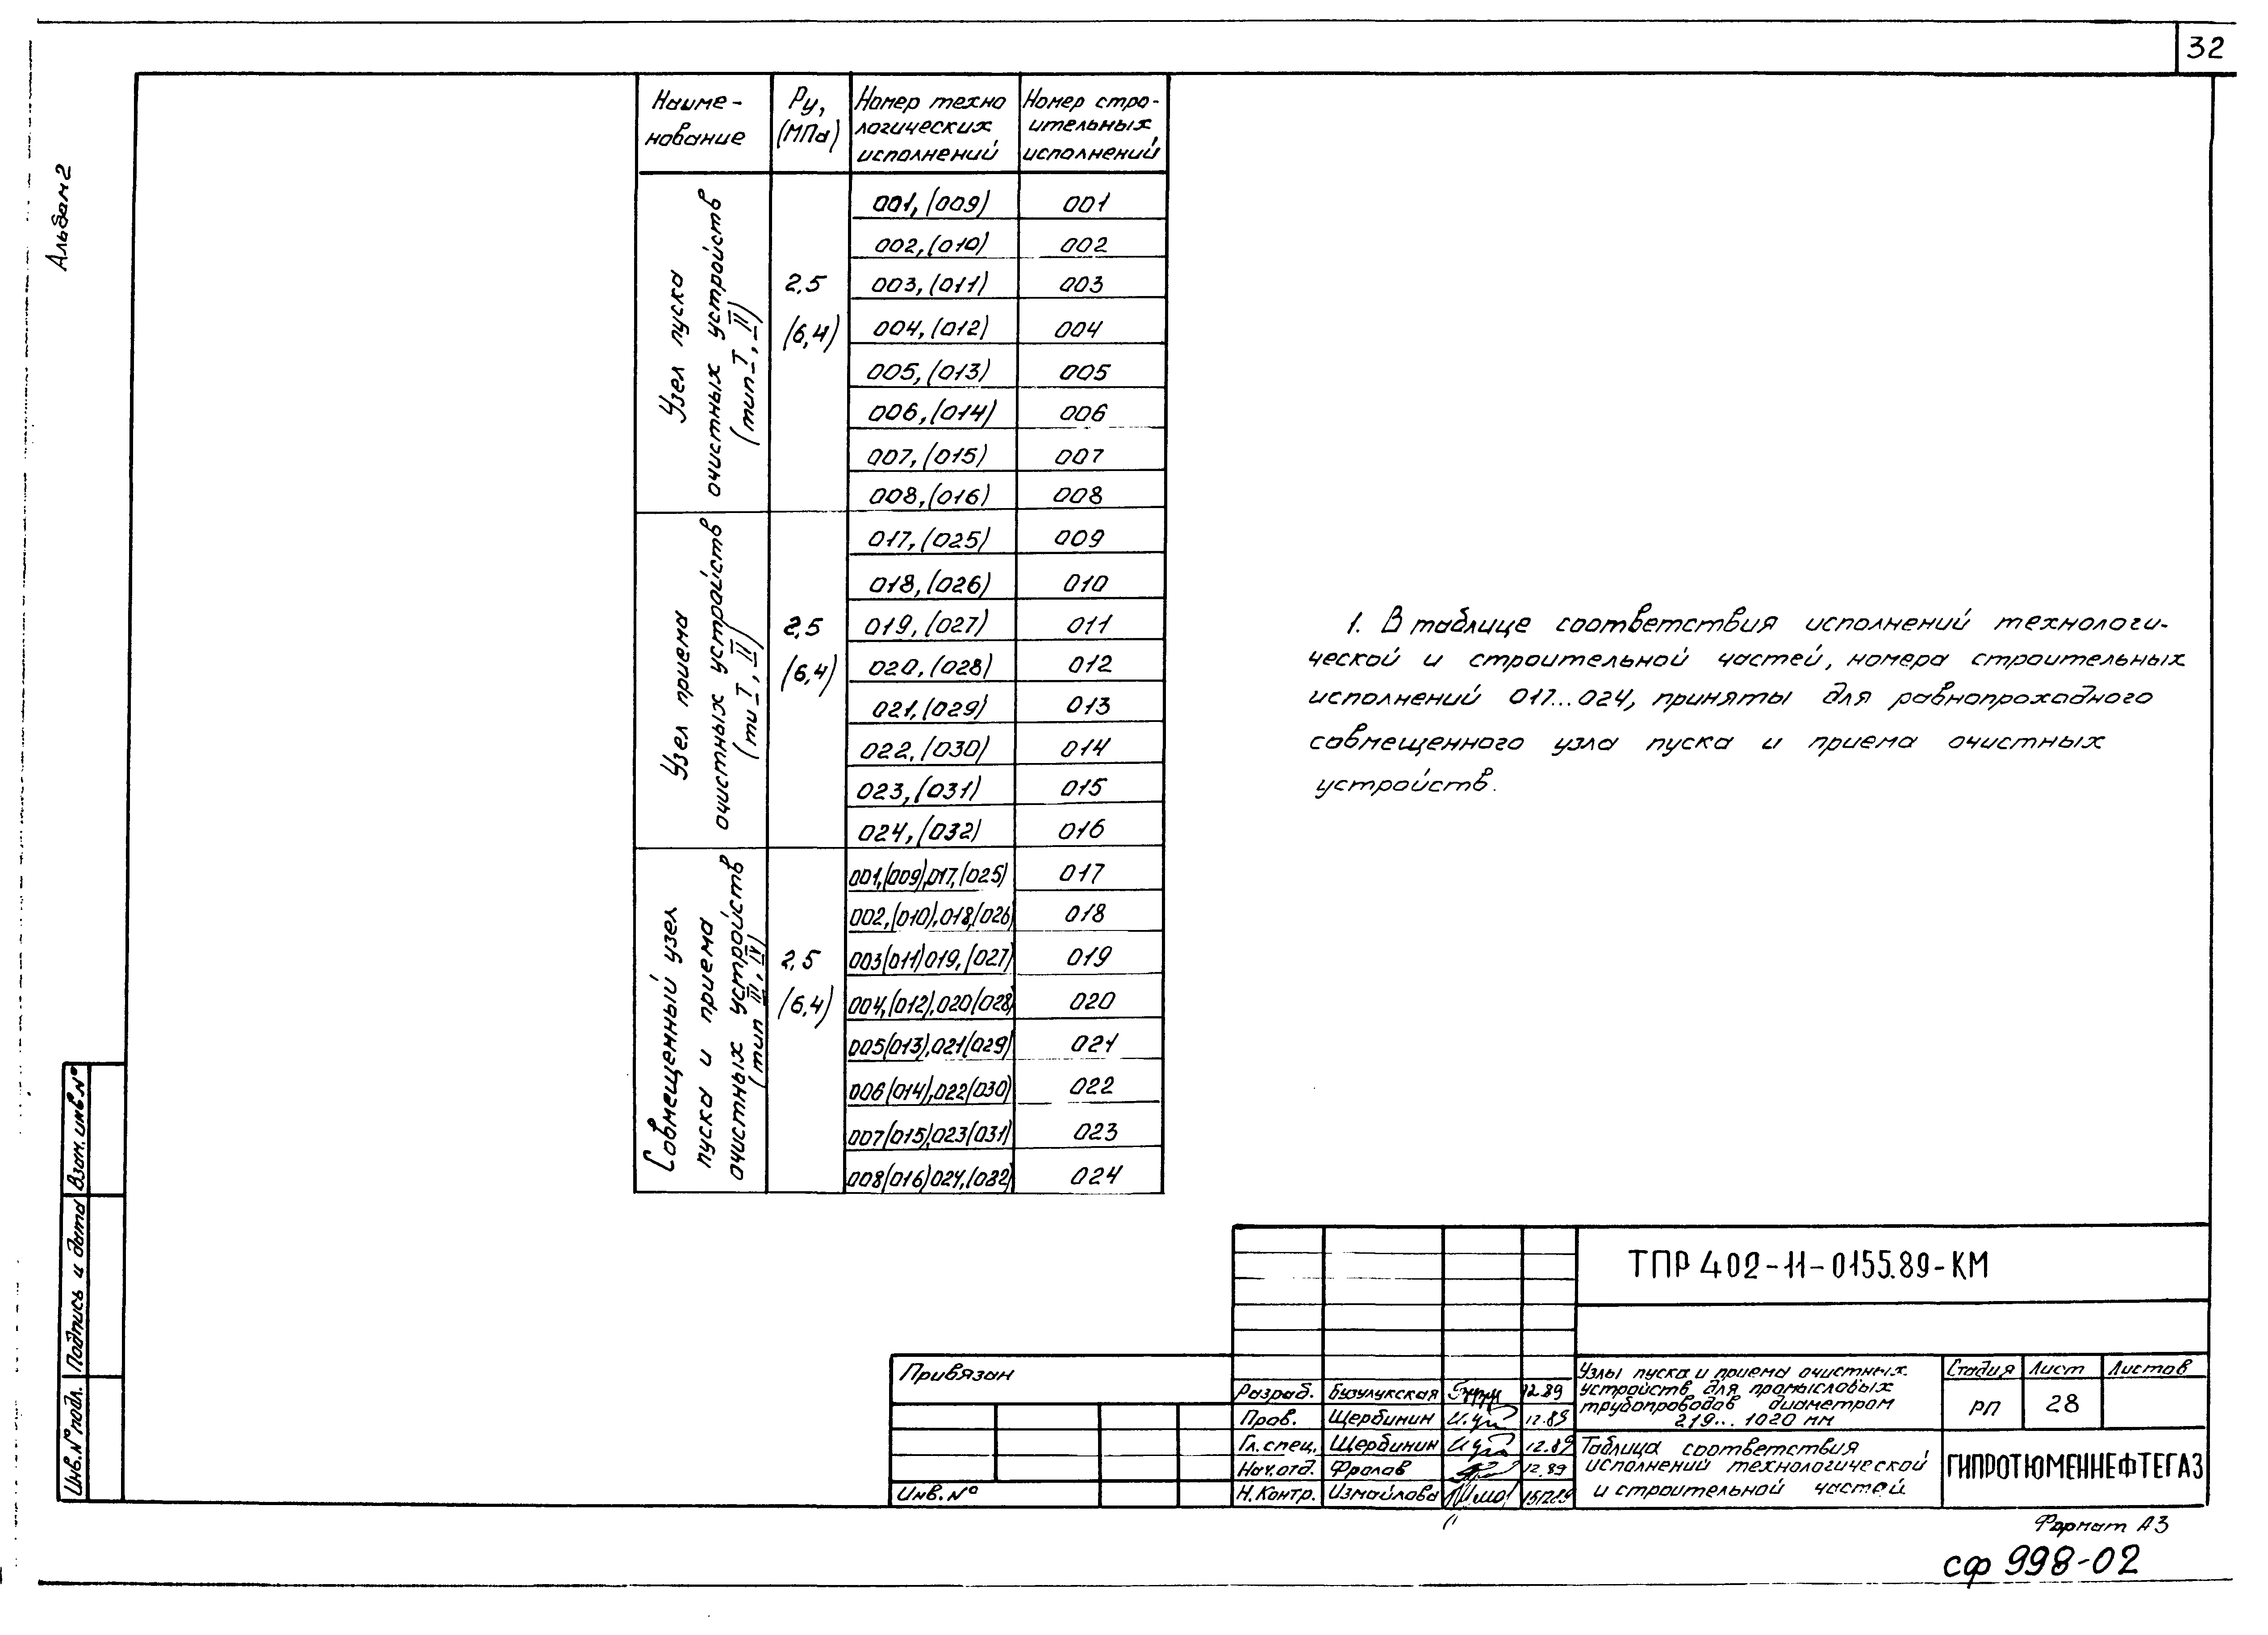 32
Альбом 2
Наиме-
нование
Ру,
(МПа)
Номер техно
логических
исполнений
Номер стро-
ительных
исполнений
Узел пуска
очистных устройств
(тип I, II)
2,5
(6,4)
001, (009) 001
002, (010) 002
003, (011) 003
004, (012) 004
005, (013) 005
006, (014) 006
007, (015) 007
008, (016) 008
Узел приема
очистных устройств
(ти I, II)
2,5
(6,4)
017, (025) 009
018, (026) 010
019, (027) 011
020, (028) 012
021, (029) 013
022, (030) 014
023, (031) 015
024, (032) 016
Совмещенный узел
пуска и приема
очистных устройств
(тип III, IV)
2,5
(6,4)
001,(009),017,(025) 017
002,(010),018,(026) 018
003(011)019,(027) 019
004,(012),020(028) 020
005(013),021(029) 021
006(014),022(030) 022
007(015),023(031) 023
008(016)024,(032) 024
1. В таблице соответствия исполнений технологи-
ческой и строительной частей, номера строительных
исполнений 017...024, приняты для равнопроходного
совмещенного узла пуска и приема очистных
устройств.
Взам. инв.№
Подпись и дата
Инв.№ подл.
ТПР 402-11-0155.89-КМ
Привязан
Инв.№
Разраб. Бузулукская 12.89
Пров. Щербинин 12.89
Гл. спец. Щербинин 12.89
Нач.отд. Фролов 12.89
Н.Контр. Измайлова 151289
Узлы пуска и приема очистных
устройств для промысловых
трубопроводов диаметром
219... 1020 мм
Стадия Лист Листов
РП 28
Таблица соответствия
исполнений технологической
и строительной частей
ГИПРОТЮМЕННЕФТЕГАЗ
Формат А3
сф 998-02